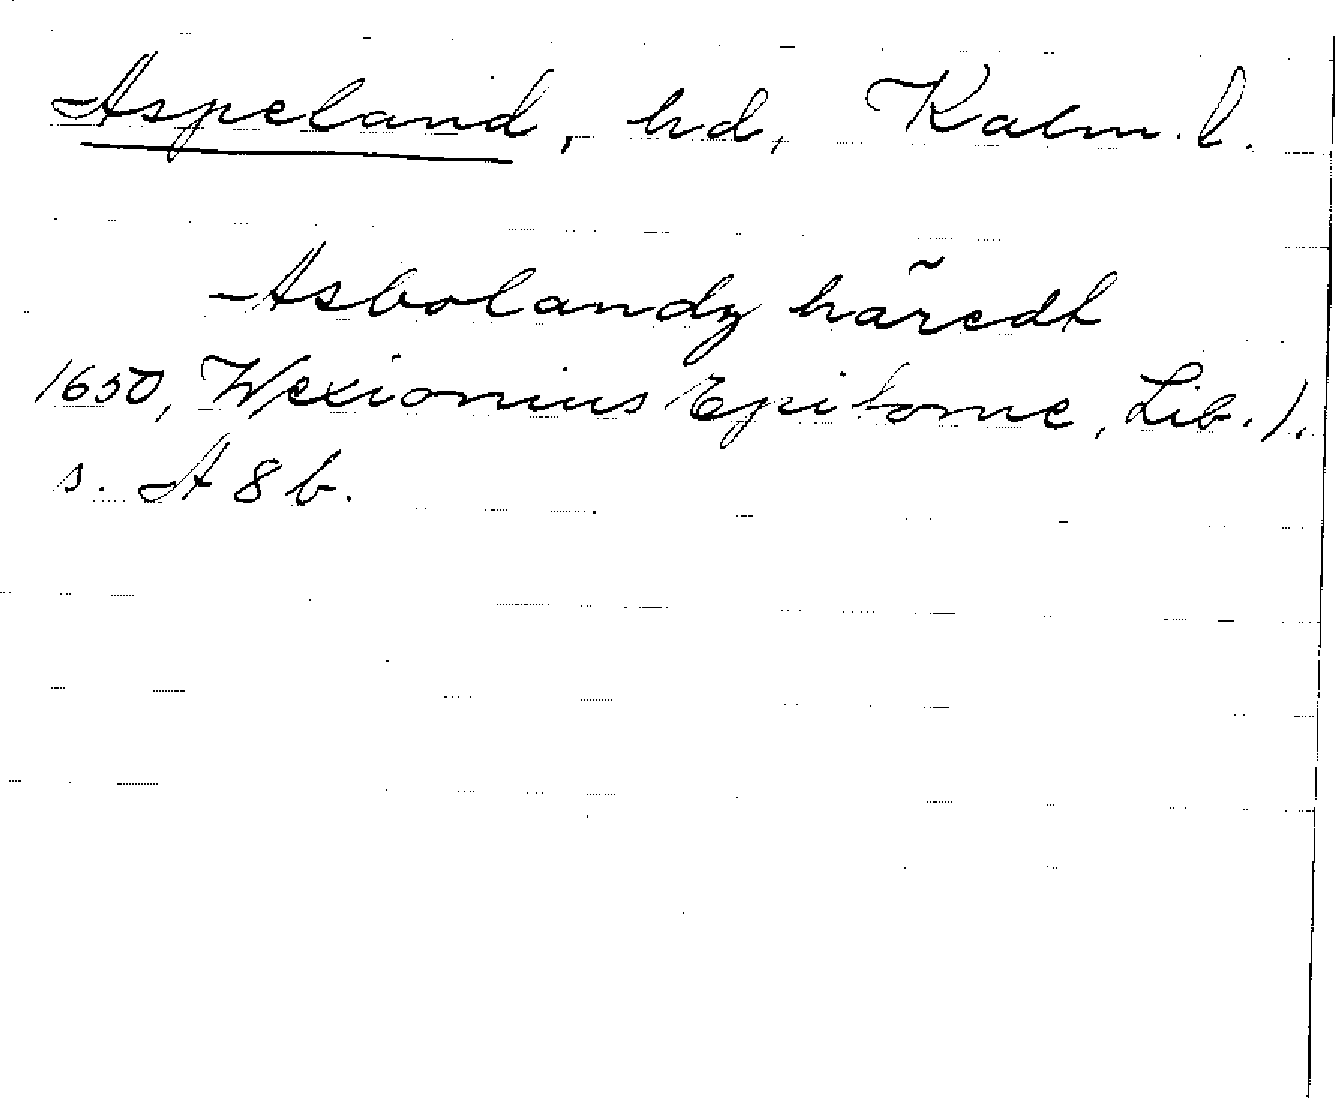 Aspeland, hd, Kalm. l.
Asbolandz häredt
1650, Wexionius Epitome, Lib. 1.
s. A 8 b.